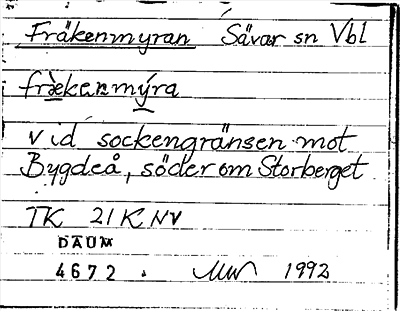 Fräkenmyran Sävar sn Vbl
fräkenmýra
vid sockengränsen mot
Bygdeå, söder om Storberget
TK 21K NV
DAUM
4672. 1992